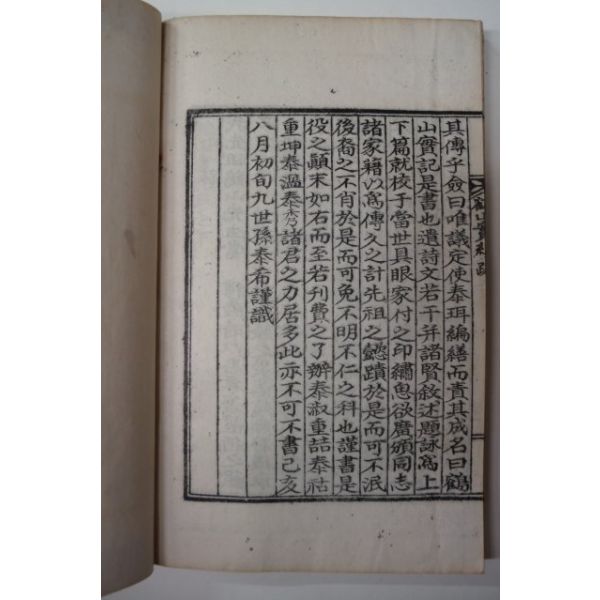 其傳乎僉曰唯議定使泰珥編繕而責其成名曰鶴
山實記是書也遺詩文若干并諸賢敘述題詠爲上
下篇就校于當世具眼家付之印繡鬼欲廣頒同志
諸家藉以爲傳久之計先祖之懿蹟於是而可不泯
後裔之不肖於是而可免不明不仁之科也謹書是
役之顚末如右而至若刊費之了辦泰淑重喆奉祜
重坤泰溫泰秀諸君之力居多此亦不可不書己亥
八月初旬九世孫泰希謹識
鶴山實紀跋